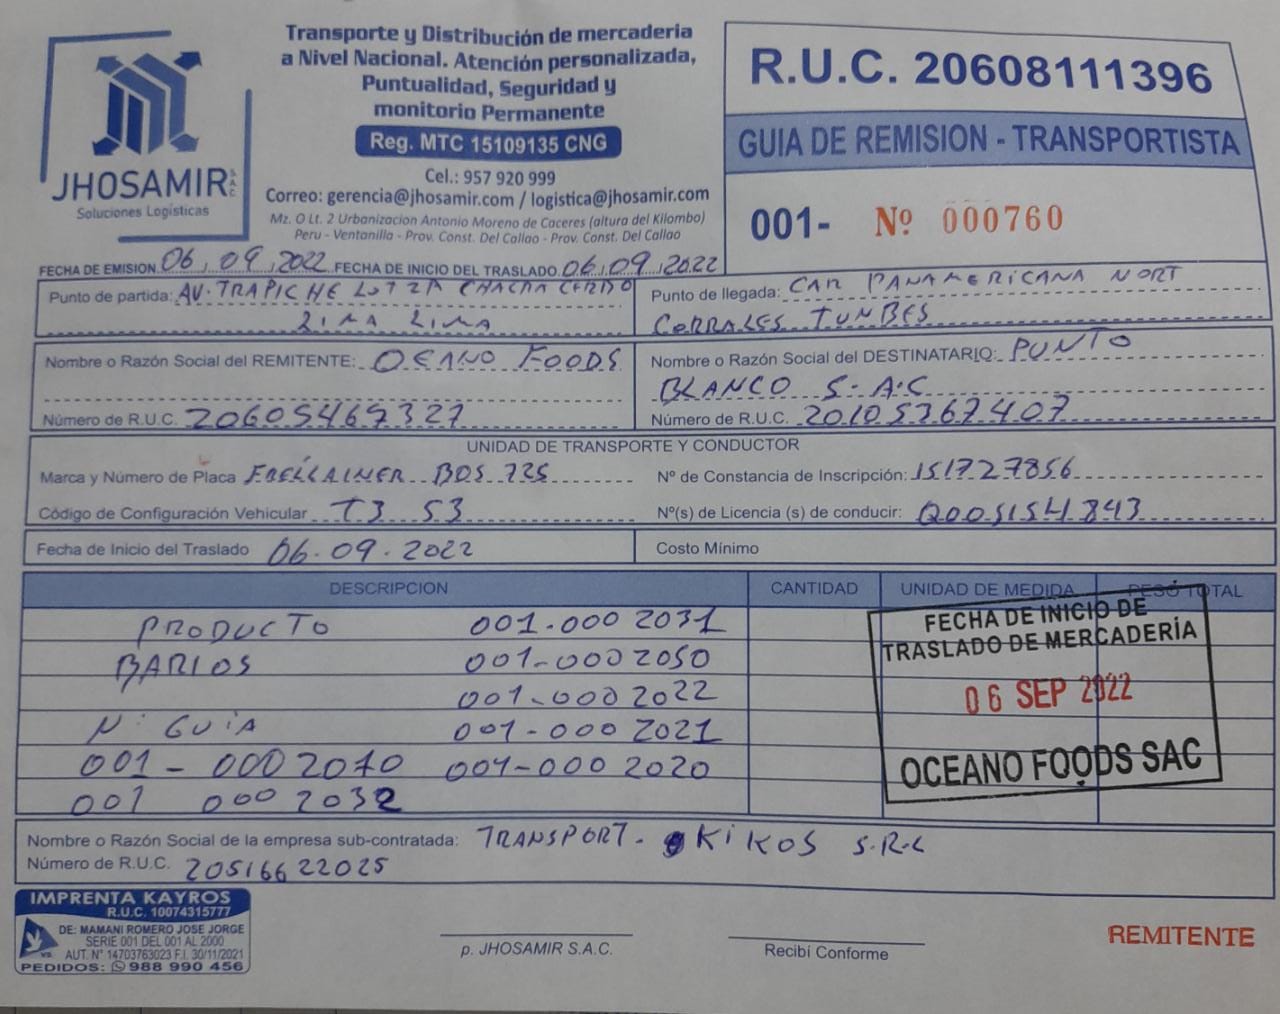 JHOSAMIR S.A.C
Soluciones Logísticas
Transporte y Distribución de mercaderia
a Nivel Nacional. Atención personalizada,
Puntualidad, Seguridad y
monitorio Permanente
Reg. MTC 15109135 CNG
Cel.: 957 920 999
Correo: gerencia@jhosamir.com / logistica@jhosamir.com
Mz. O Lt. 2 Urbanizacion Antonio Moreno de Caceres (altura del Kilombo)
Peru - Ventanilla - Prov. Const. Del Callao - Prov. Const. Del Callao
R.U.C. 20608111396
GUIA DE REMISION - TRANSPORTISTA
001- Nº 000760
FECHA DE EMISION 06, 09, 2022 FECHA DE INICIO DEL TRASLADO 06, 09, 2022
Punto de partida: AV. TRAPICHE LOT 2A CHACRA CERRO
LIMA LIMA
Punto de llegada: CAR PANAMERICANA NORT
CORRALES TUNBES
Nombre o Razón Social del REMITENTE: OCEANO FOODS
Número de R.U.C. 20605469327
Nombre o Razón Social del DESTINATARIO: PUNTO
BLANCO S.A.C
Número de R.U.C. 20105367407
UNIDAD DE TRANSPORTE Y CONDUCTOR
Marca y Número de Placa BDS 725
Nº de Constancia de Inscripción: 151727856
Código de Configuración Vehicular T3 S3
Nº(s) de Licencia (s) de conducir: Q005154843
Fecha de Inicio del Traslado 06.09.2022
Costo Mínimo
DESCRIPCION CANTIDAD UNIDAD DE MEDIDA PESO TOTAL
PRODUCTO 001.000 2031
BARIOS 001-000 2050
001-000 2022
N. GUIA 001-000 2021
001 - 000 2010 001-000 2020
001 000 2032
FECHA DE INICIO DE
TRASLADO DE MERCADERÍA
06 SEP 2022
OCEANO FOODS SAC
Nombre o Razón Social de la empresa sub-contratada: TRANSPORT. KIKOS S.R.L
Número de R.U.C. 20516622025
IMPRENTA KAYROS
R.U.C. 10074315777
DE: MAMANI ROMERO JOSE JORGE
SERIE 001 DEL 001 AL 2000
AUT. N° 14703763023 F.I. 30/11/2021
PEDIDOS: 988 990 456
p. JHOSAMIR S.A.C.
Recibí Conforme
REMITENTE